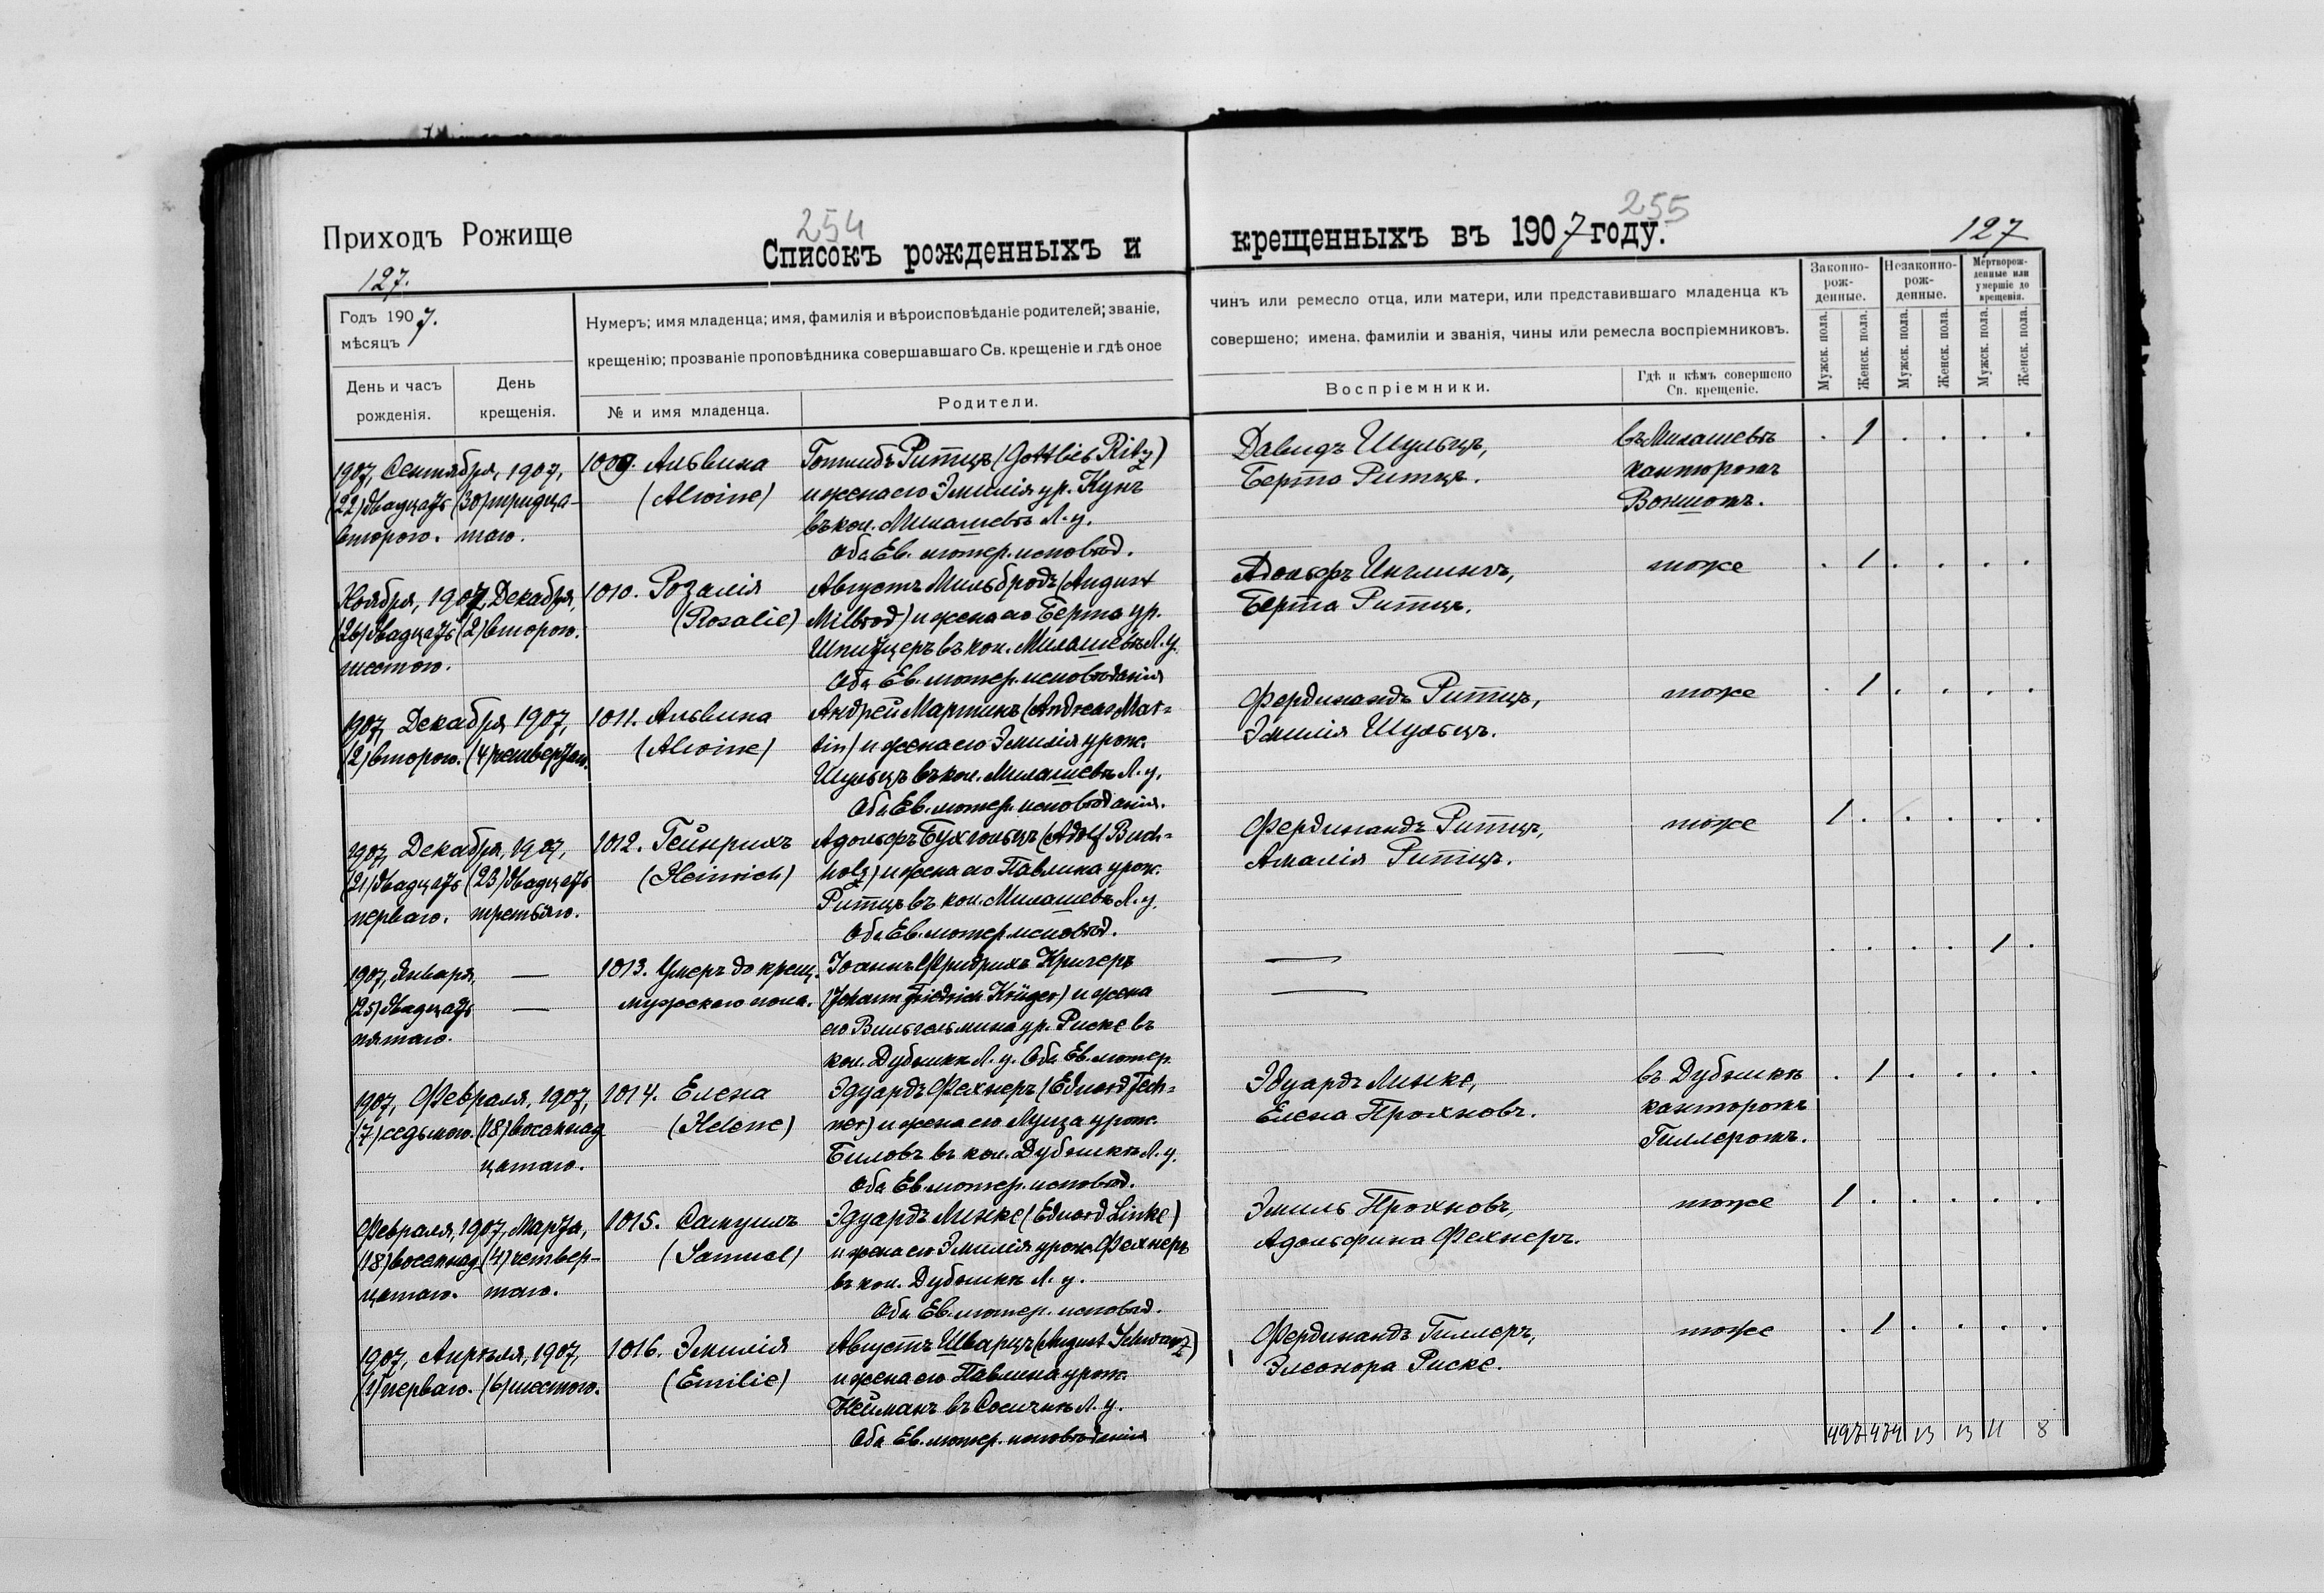 254
255
Приходъ Рожище
127.
Списокъ рожденныхъ и
крещенныхъ въ 1907 году.
127
Годъ 1907.
мѣсяцъ
День и часъ
рожденія.
День
крещенія.
Нумеръ; имя младенца; имя, фамилія и вѣроисповѣданіе родителей; званіе,
крещенію; прозваніе проповѣдника совершавшаго Св. крещеніе и гдѣ оное
№ и имя младенца.
Родители.
чинъ или ремесло отца, или матери, или представившаго младенца къ
совершено; имена, фамиліи и званія, чины или ремесла воспріемниковъ.
Воспріемники.
Гдѣ и кѣмъ совершено
Св. крещеніе.
Законно-
рож-
денные.
Незаконно-
рож-
денные.
Мертворож-
денные или
умершіе до
крещенія.
Мужск. пола.
Женск. пола.
Мужск. пола.
Женск. пола.
Мужск. пола.
Женск. пола.
1907, Сентября, 1907,
(22) двадцать (30) тридца-
второго. таго.
1009. Альвина
(Alwine)
Готлибъ Ритцъ (Gottlieb Ritz)
и жена его Эмилія ур. Кунъ
въ кол. Милашевѣ Л. у.
Оба Ев. лютер. исповѣд.
Давидъ Шульцъ,
Берта Ритцъ.
въ Милашевѣ
канторомъ
. 1 . . . .
Ноября, 1907, Декабря,
(26) двадцать (2) второго.
шестого.
1010. Розалія
(Rosalie)
Августъ Мильбродъ (August
Milbrod) и жена его Берта ур.
Шпитцеръ въ кол. Милашевѣ Л. у.
Оба Ев. лютер. исповѣданія
Адольфъ
Берта Ритцъ.
тоже
. 1 . . . .
1907, Декабря 1907,
(2) второго. (4) четвертаго.
1011. Альвина
(Alwine)
Андрей Мартинъ (Andreas Mar-
tin) и жена его Эмилія урож.
Шульцъ въ кол. Милашевѣ Л. у.
Оба Ев. лютер. исповѣданія.
Фердинандъ Ритцъ,
Эмилія Шульцъ.
тоже
. 1 . . . .
1907, Декабря, 1907,
(21) двадцать (23) двадцать
перваго. третьяго.
1012. Гейнрихъ
(Heinrich)
Адольфъ Бухгольцъ (Adolf Buch-
holz) и жена его Павлина урож.
Ритцъ въ кол. Милашевѣ Л. у.
Оба Ев. лютер. исповѣд.
Фердинандъ Ритцъ,
Амалія Ритцъ.
тоже
1 . . . . .
1907, Января, —
(25) двадцать —
пятаго.
1013. Умеръ до крещ.
мужского пола.
Іоаннъ Фридрихъ Кригеръ
(Johann Friedrich Krüger) и жена
его Вильгельмина ур. Риске въ
кол. Дубишкѣ Л. у. Оба Ев. лютер.
—
—
—
. . . . 1 .
1907, Февраля, 1907,
(7) седьмого. (18) восемнад
цатаго.
1014. Елена
(Helene)
Эдуардъ Фехнеръ (Eduard Fech-
ner) и жена его Луиза урож.
Биловъ въ кол. Дубишкѣ Л. у.
Оба Ев. лютер. исповѣд.
Эдуардъ Линке,
Елена Прохновъ.
въ Дубишкѣ
канторомъ
Гиллеромъ.
. 1 . . . .
Февраля, 1907, Марта,
(18) восемнад (4) четвер-
цатаго. таго.
1015. Самуилъ
(Samuel)
Эдуардъ Линке (Eduard Linke)
и жена его Эмилія урож. Фехнеръ
въ кол. Дубишкѣ Л. у.
Оба Ев. лютер. исповѣд.
Эмиль Прохновъ,
Адольфина Фехнеръ.
тоже
1 . . . . .
1907, Апрѣля, 1907,
(1) перваго. (6) шестого.
1016. Эмилія
(Emilie)
Августъ Шварцъ (August Schwarz)
и жена его Павлина урож.
Нейманъ въ Сосичнѣ Л. у.
Оба Ев. лютер. исповѣданія
Фердинандъ Гиллеръ,
Элеонора Риске.
тоже
. 1 . . . .
13 13 11 8